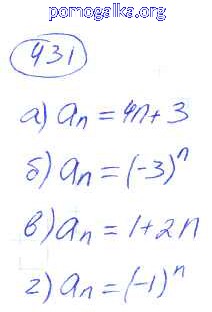 pomogalka.org
431
а) aₙ = 4n + 3
б) aₙ = (-3)ⁿ
в) aₙ = 1 + 2n
г) aₙ = (-1)ⁿ